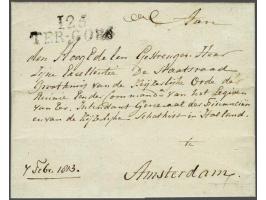 Aan
125
TER-GOES
den Hoog Edelen Gestrengen Heer
Zijne Excellentie De Staatsraad
Grootkruis van de Keizerlijke Orde de
Reunie en de Commandt van het Legioen
van Eer, Intendant Generaal der Financien
en van de Keizerlijke Schatkist in Holland.
te
7 Febr. 1813.
Amsterdam.